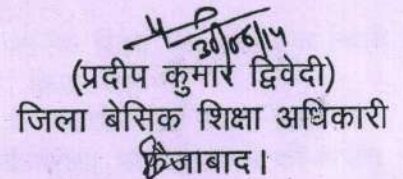 30/06/14
(प्रदीप कुमार द्विवेदी)
जिला बेसिक शिक्षा अधिकारी
फैजाबाद।